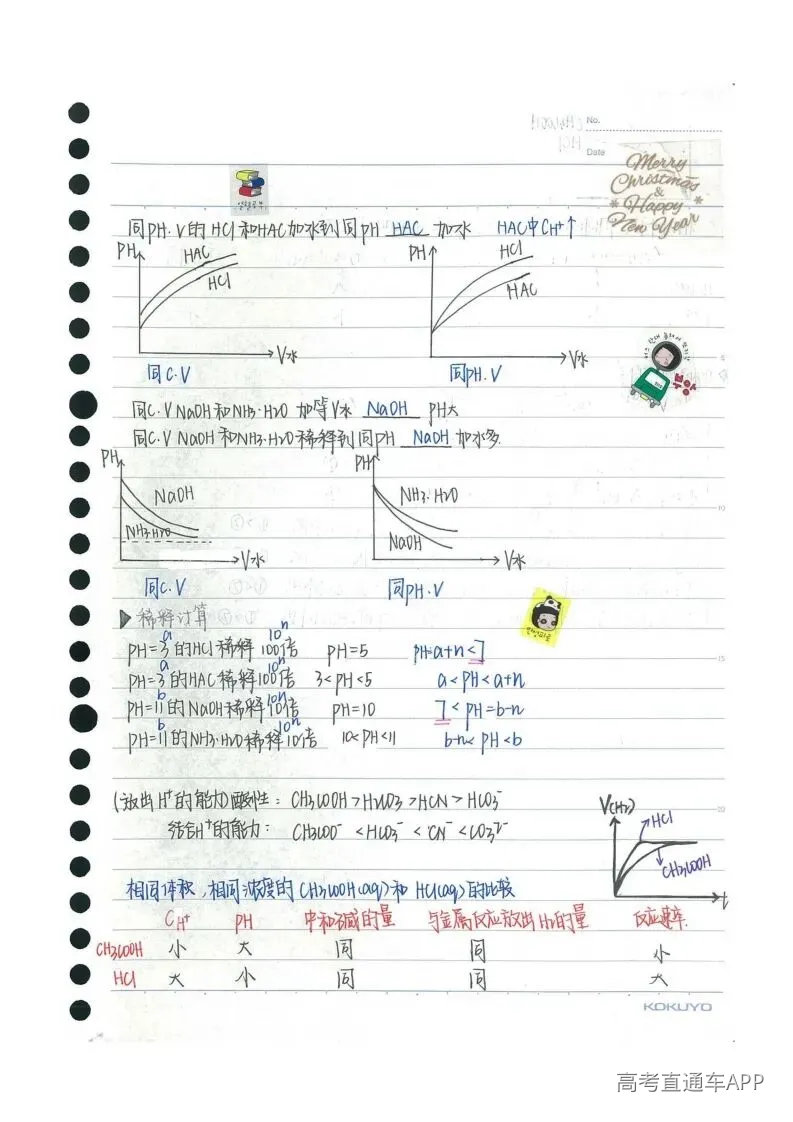 No.
Date
Merry
Christmas
&
Happy
New Year
同PH.V的HCl和HAC加水到同PH HAC 加水 HAC中CH+↑
PH HAC HCl V水
PH HCl HAC V水
同C.V 同PH.V
同C.V NaOH和NH3·H2O 加等V水 NaOH PH大
同C.V NaOH和NH3·H2O稀释到同PH NaOH 加水多
PH NaOH NH3·H2O V水
PH NH3·H2O NaOH V水
同C.V 同PH.V
稀释计算
a 10ⁿ
PH=3的HCl稀释100倍 PH=5 PH=a+n<7
a 10ⁿ
PH=3的HAC稀释100倍 3<PH<5 a<PH<a+n
b 10ⁿ
PH=11的NaOH稀释10倍 PH=10 7<PH=b-n
b 10ⁿ
PH=11的NH3·H2O稀释10倍 10<PH<11 b-n<PH<b
(放出H⁺的能力)酸性: CH3COOH>H2CO3>HCN>HCO3⁻
结合H⁺的能力: CH3COO⁻<HCO3⁻<CN⁻<CO3²⁻
V(H2) HCl CH3COOH t
相同体积,相同浓度的CH3COOH(aq)和HCl(aq)的比较
CH⁺ PH 中和碱的量 与金属反应放出H2的量 反应速率
CH3COOH 小 大 同 同 小
HCl 大 小 同 同 大
KOKUYO
高考直通车APP